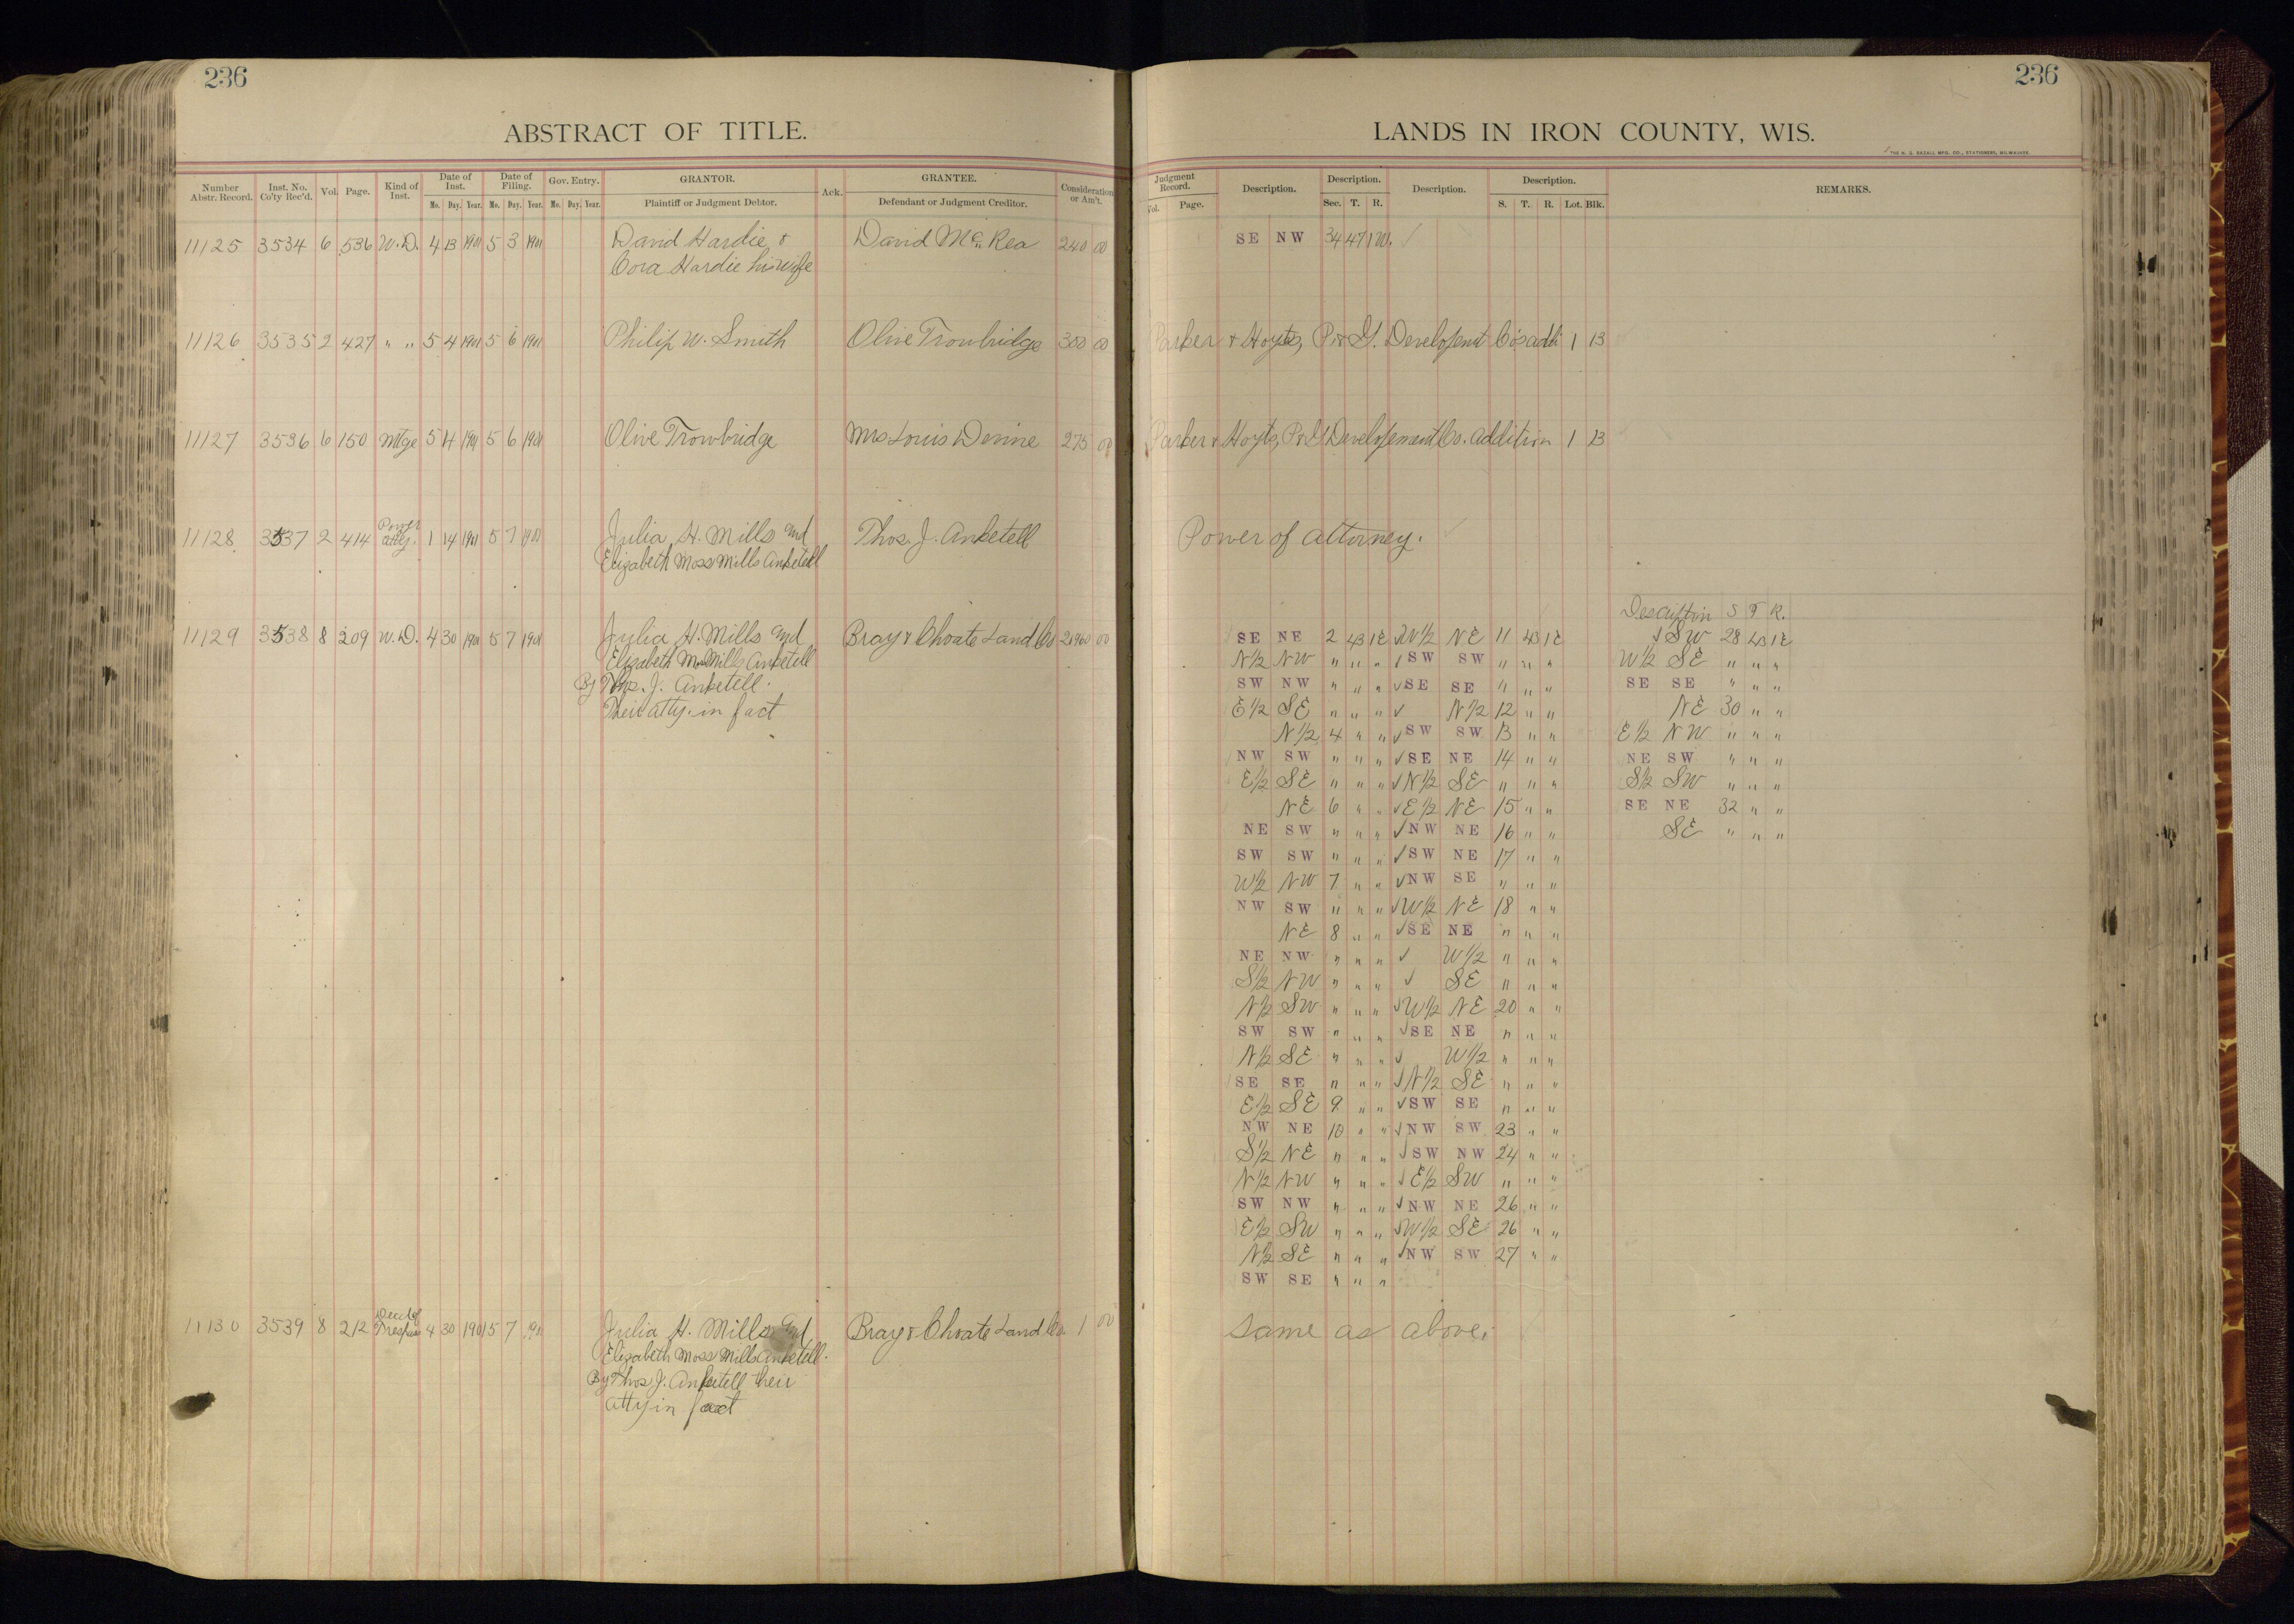 236
ABSTRACT OF TITLE.
Number Abstr. Record. Inst. No. Co'ty Rec'd. Vol. Page. Kind of Inst. Date of Inst. Date of Filing. Gov. Entry. GRANTOR. Ack. GRANTEE. Consideration or Am't.
Mo. Day. Year. Mo. Day. Year. Mo. Day. Year. Plaintiff or Judgment Debtor. Defendant or Judgment Creditor.
11125 3534 6 536 W.D. 4 13 1901 5 3 1901 David Hardie & David McRea 240 00
Cora Hardie his wife
11126 3535 2 427 " " 5 4 1901 5 6 1901 Philip W. Smith Olive Trowbridge 300 00
11127 3536 6 150 Mtge 5 4 1901 5 6 1901 Olive Trowbridge Mrs Louis Devine 275 00
11128 3537 2 414 Power atty. 1 14 1901 5 7 1901 Julia H. Mills and Thos. J. Anketell
Elizabeth Moss Mills Anketell
11129 3538 8 209 W.D. 4 30 1901 5 7 1901 Julia H. Mills and Bray & Choate Land Co 00
Elizabeth M. Mills Anketell
By Thos. J. Anketell
Their atty. in fact
11130 3539 8 212 Deed of Trespass 4 30 1901 5 7 1901 Julia H. Mills and Bray & Choate Land Co. 1 00
Elizabeth Moss Mills Anketell.
By Thos J. Anketell their
atty in fact
236
LANDS IN IRON COUNTY, WIS.
THE H. G. RAZALL MFG. CO., STATIONERS, MILWAUKEE.
Judgment Record. Description. Description. Description. Description. REMARKS.
Vol. Page. Sec. T. R. S. T. R. Lot. Blk.
SE NW 34 47 1W. ✓
Parker & Hoyts, P & G. Development Co's addi 1 13
Parker & Hoyts, P & G Development Co. addition 1 13
Power of attorney.
Description S T R.
SE NE 2 43 1E ✓W½ NE 11 43 1E ✓SW 28 43 1E
N½ NW " " " ✓SW SW " " " W½ SE " " "
SW NW " " " ✓SE SE " " " SE SE " " "
E½ SE " " " ✓ N½ 12 " " NE 30 " "
N½ 4 " " ✓SW SW 13 " " E½ NW " " "
NW SW " " " ✓SE NE 14 " " NE SW " " "
E½ SE " " " ✓N½ SE " " " S½ SW " " "
NE 6 " " ✓E½ NE 15 " " SE NE 32 " "
NE SW " " " ✓NW NE 16 " " SE " " "
SW SW " " " ✓SW NE 17 " "
W½ NW 7 " " ✓NW SE " " "
NW SW " " " ✓W½ NE 18 " "
NE 8 " " ✓SE NE " " "
NE NW " " " ✓ W½ " " "
S½ NW " " " ✓ SE " " "
N½ SW " " " ✓W½ NE 20 " "
SW SW " " " ✓SE NE " " "
N½ SE " " " ✓ W½ " " "
SE SE " " " ✓N½ SE " " "
E½ SE 9 " " ✓SW SE " " "
NW NE 10 " " ✓NW SW 23 " "
S½ NE " " " ✓SW NW 24 " "
N½ NW " " " ✓E½ SW " " "
SW NW " " " ✓NW NE 26 " "
E½ SW " " " ✓W½ SE 26 " "
N½ SE " " " ✓NW SW 27 " "
SW SE " " "
Same as above.